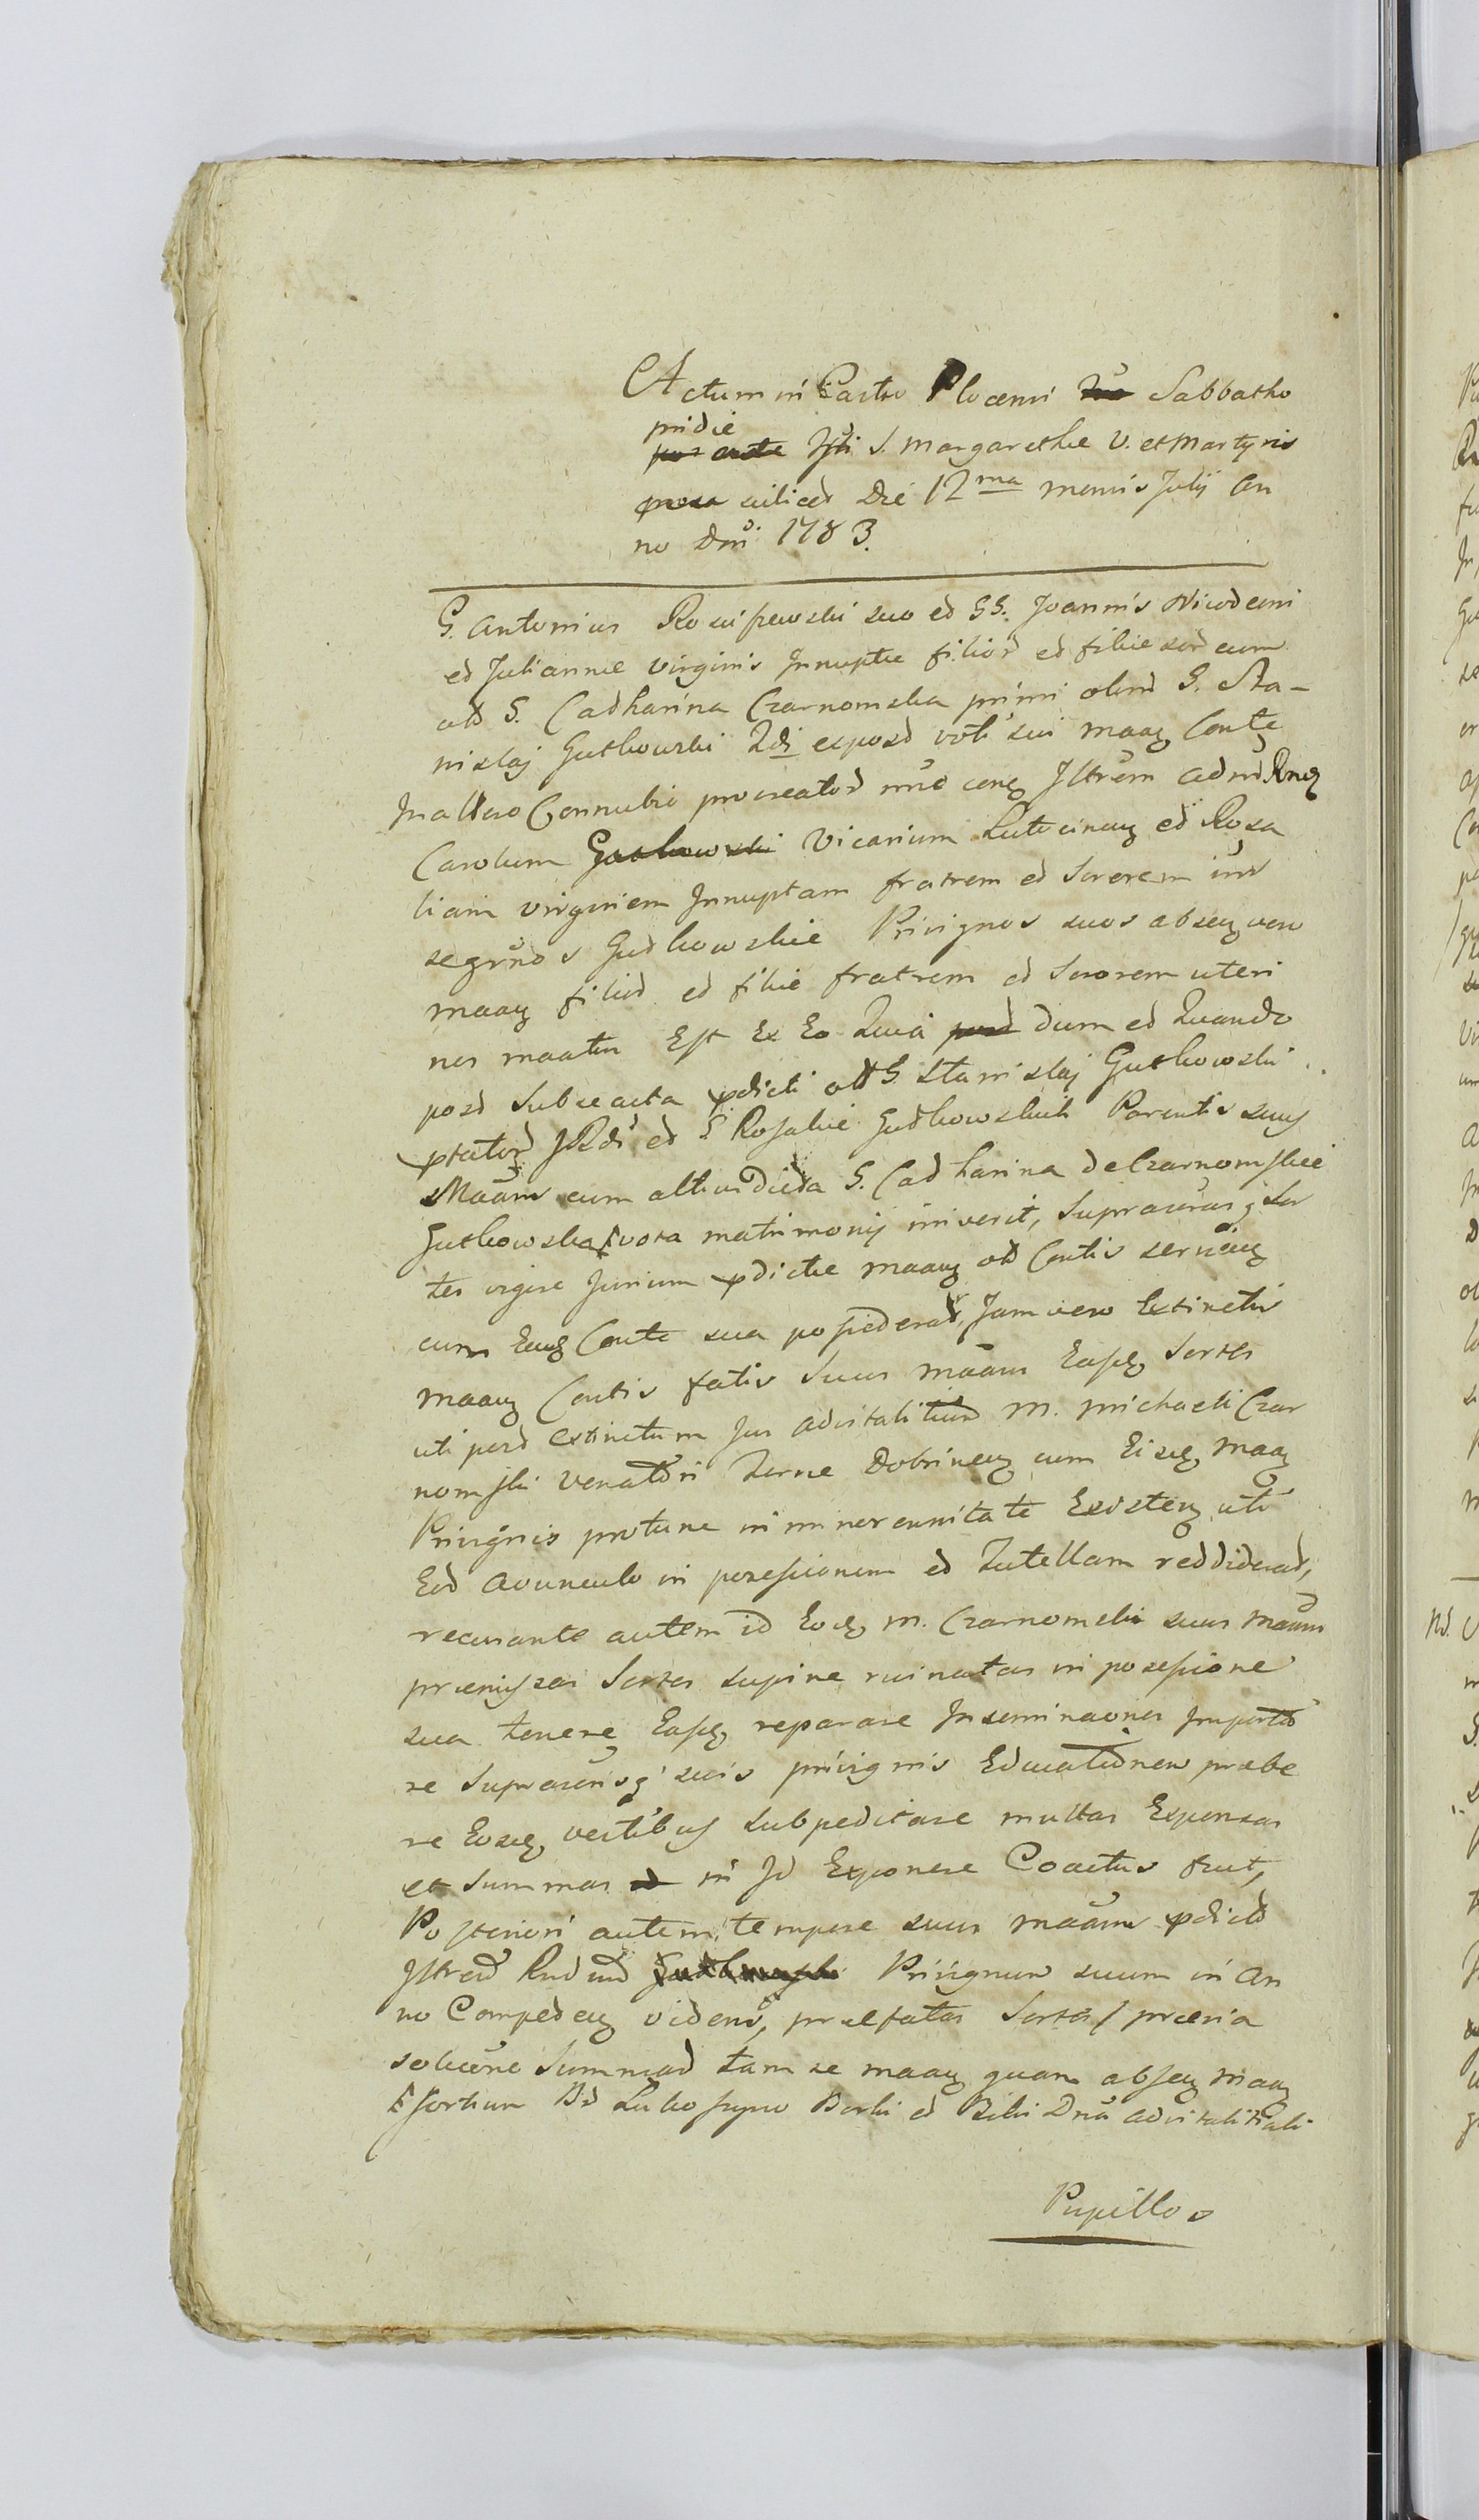 Actum in Castro Plocensi Sabbatho
pridie
festi S. Margarethe V. et Martyris
scilicet Die 12ma mensis Julij An
no Dni 1783.
G. Antonius Rosciszewski suo et GG. Joannis Nicodemi
et Julianne virginis Innupte filior et filie sor cum
olt G. Catharina Czarnomska primi olim G. Sta-
nislaj Gutkowski 2di expost voti sui maag Conte
In altero Connubio procreator nunc conq Illtrem admd Rndq
Carolum Gutkowski Vicarium Lutocineq et Rosa
liam virginem Innuptam fratrem et Sororem int
se grnos Gutkowskie Privignos suos abseq vero
maaq filior et filie fratrem et Sororem uteri
nos maatur Est Ex Eo Quia post dum et Quando
post Subseacta pdicti olt G. Stanislaj Gutkowski
ptator Rdi et G. Rosalie Gutkowskich Parentis suus
Maans cum altius dicta G. Catharina de Czarnomskie
Gutkowska vota matrimonij iniverit, Suprascrasq Sor
tes vigore Jurium pdicte maaq olt Contis servieq
cum Eaq Conte sua possiderat, Jam vero Extinctis
maaq Contis fatis Suus maans Easq Sortes
uti post extinctum Jus advitalitium M. Michaeli Czar
nomski Venatori Terre Dobrineq cum Eisq maaq
Privignis protunc in minorennitate Existeq uti
Eor avunculo in possessionem et Tutellam reddiderat,
recusante autem id Eoq M. Czarnomski suus maans
premissas Sortes supine ruinatas in possessione
sua tenere Easq reparare Inseminaones Importa
re Suprascrisq suis privignis Educationem prebe
re Eosq vestibus subpeditare multas Expensas
et Summas in Id Exponere Coactus fuit,
Posteriori autem tempore suus maans pdictum
Illtrem Rndum Gutkowski Privignum suum in An
no Competeq videns, prefatas Sortes / previa
solucone Summar tam se maaq quam abseq maaq
Exfortun Bd Lukoszyno Borki et Biki Dna advitalitiali
Pupillos